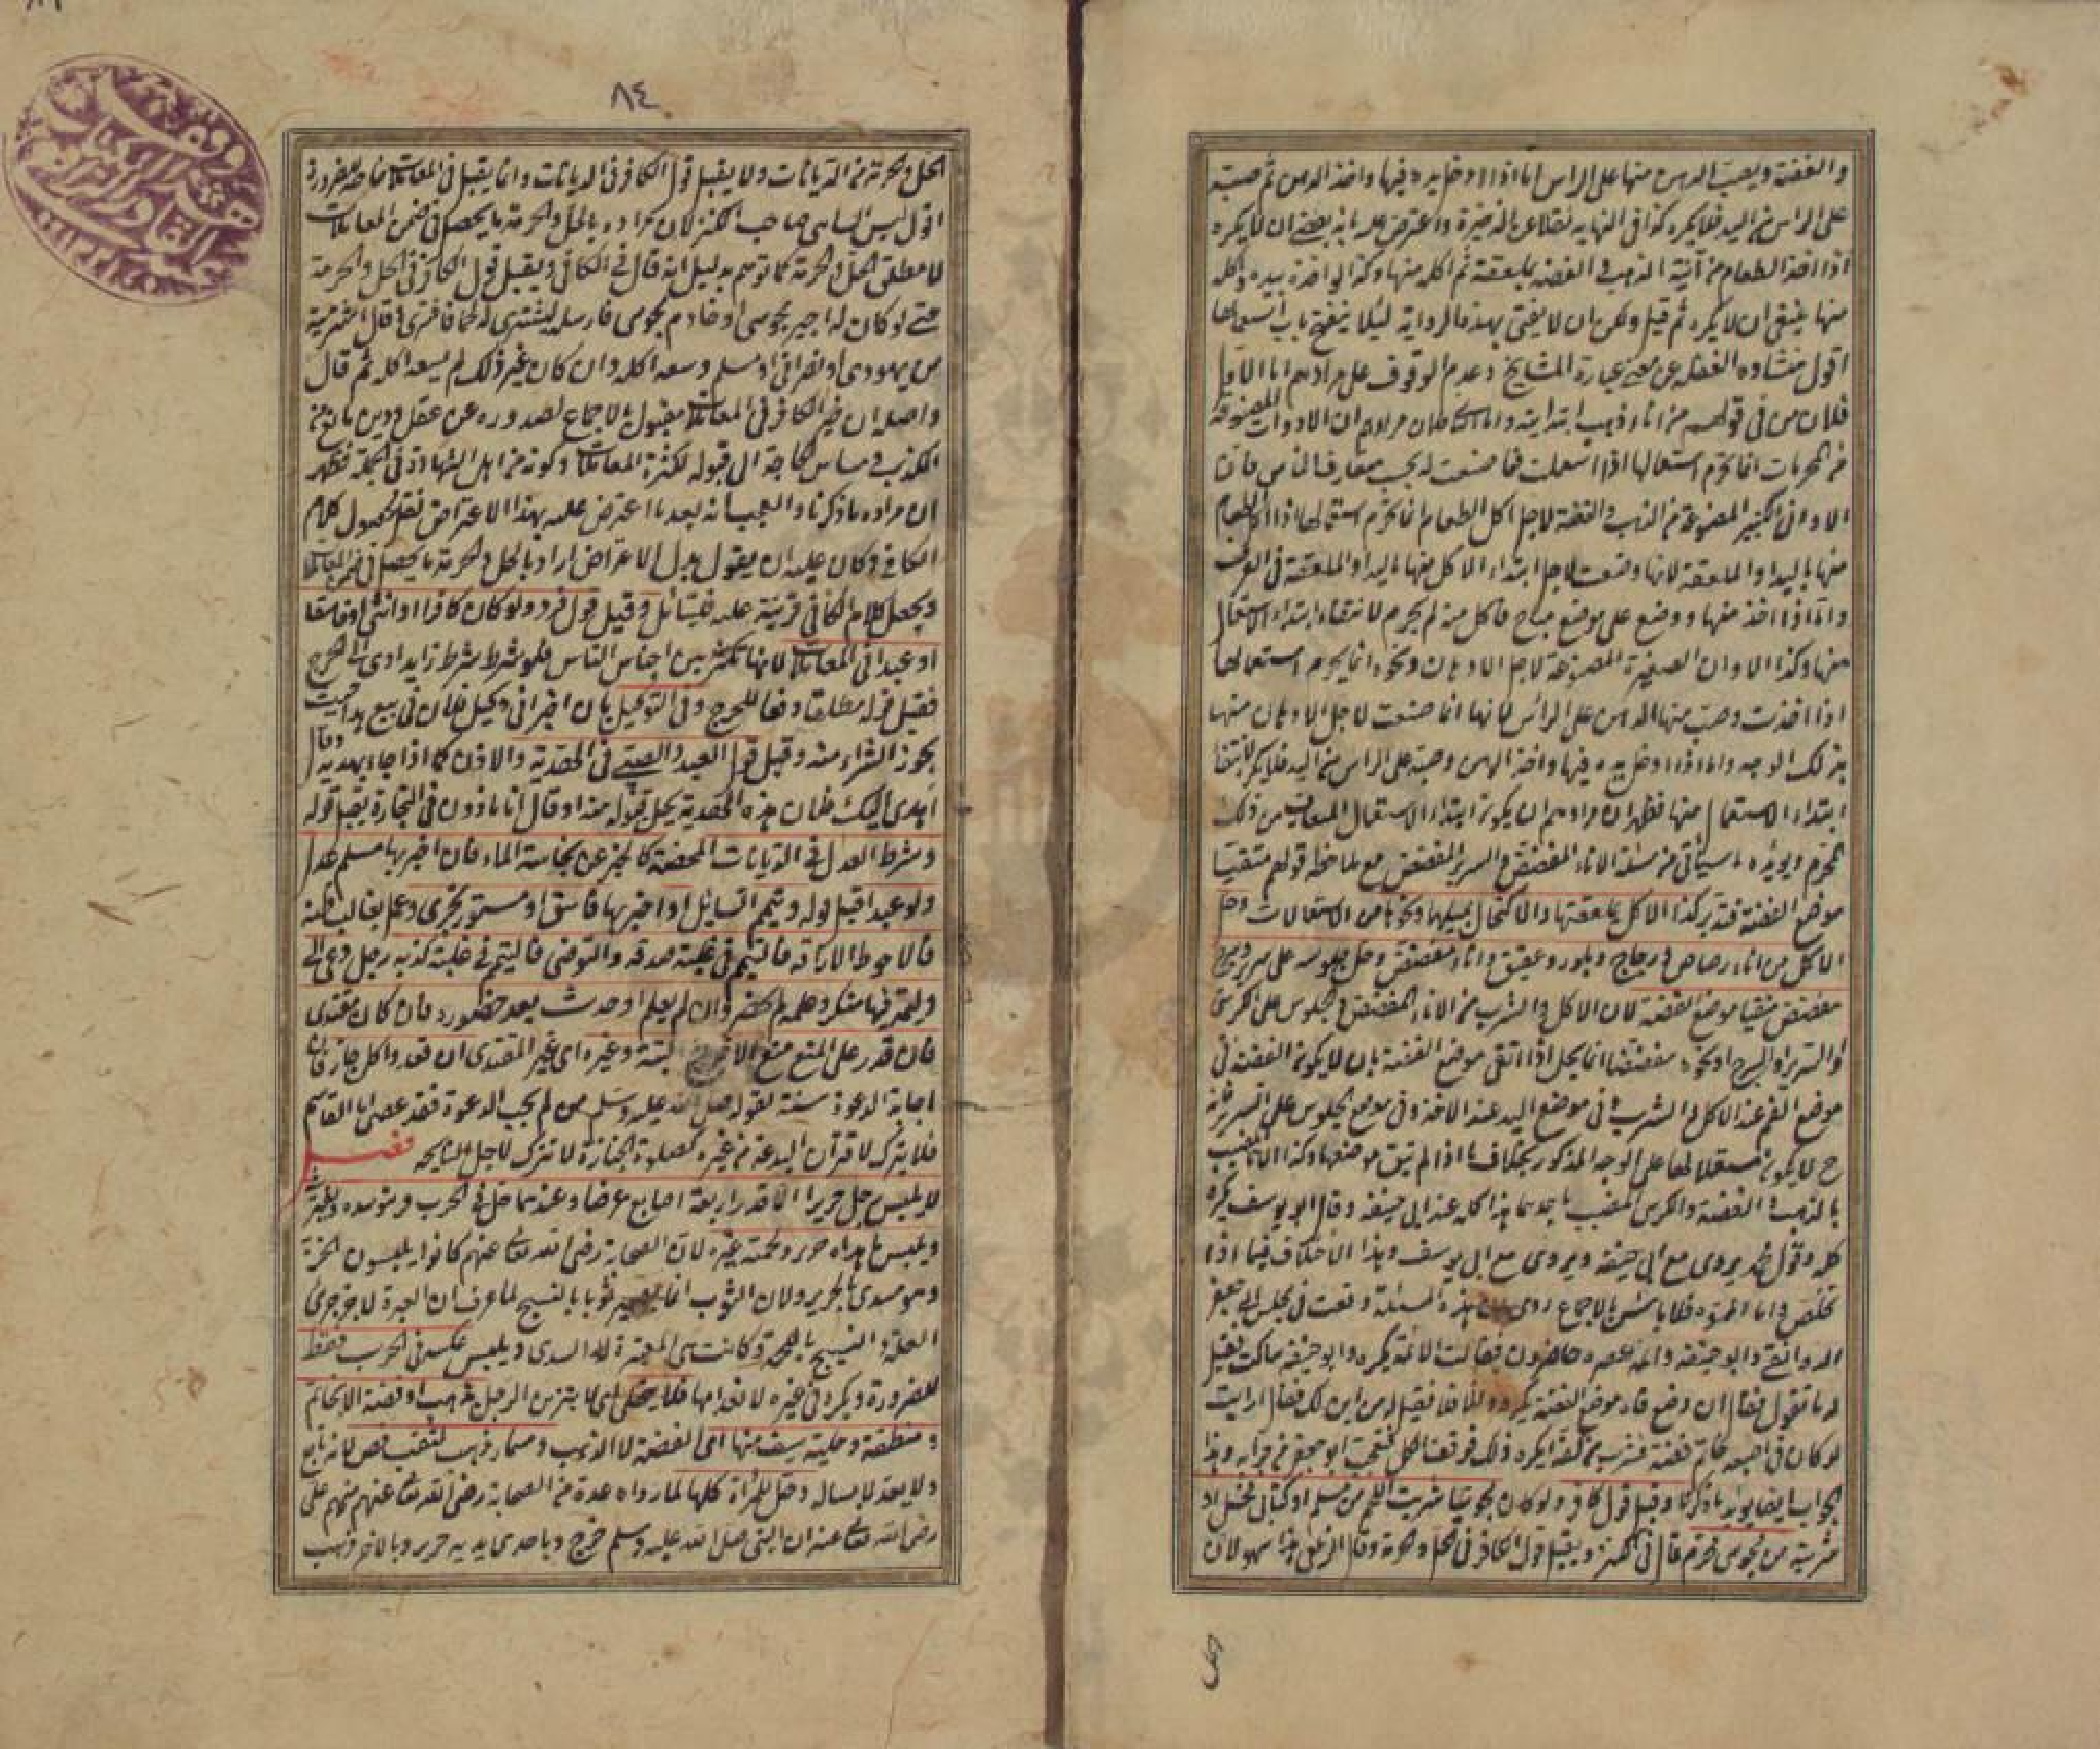 والفضة ويصب الدهن منها على الراس اما اذا ادخل يده فيها واخذ الدهن ثم صبه
على الراس من اليد فلا يكره كذا فى النهاية نقلا عن الذخيرة واعترض عليه بانه يقتضى ان لا يكره
اذا اخذ الطعام من آنية الذهب والفضة بملعقة ثم اكله منها وكذا لو اخذه بيده واكله
منها ينبغى ان لا يكره ثم قيل ولكن ان لا يفتى بهذه الرواية لئلا ينفتح باب استعمالها
اقول منشاؤه الغفلة عن معنى عبارة المشايخ وعدم الوقوف على مرادهم اما الاول
فلان من فى قولهم من اناء ذهب ابتدائية واما الثانى فلان مرادهم ان الادوات المصنوعة
من المحرمات انما يحرم استعمالها اذا استعملت فيما صنعت له بحسب متعارف الناس فان
الاوانى الكبير المصنوعة من الذهب والفضة لاجل اكل الطعام انما يحرم استعمالها اذا اكل الطعام
منها باليد او الملعقة لانها وضعت لاجل ابتداء الاكل منها باليد او الملعقة فى العرف
واما اذا اخذ منها ووضع على موضع مباح فاكل منه لم يحرم لانتفاء ابتداء الاستعمال
منها وكذا الاوانى الصغيرة المصنوعة لاجل الادهان ونحوه انما يحرم استعمالها
اذا اخذت وصب منها الدهن على الراس لانها انما صنعت لاجل الادهان منها
بذلك الوجه واما اذا ادخل يده فيها واخذ الدهن وصبه على الراس من اليد فلا يكره لانتفاء
ابتداء الاستعمال منها فظهر ان مرادهم ان يكون ابتداء الاستعمال المتعارف من ذلك
المحرم ويؤيده ما سيأتى من مسئلة الاناء المفضض والسرير المفضض مع ملاحظة قولهم متقيا
موضع الفضة فتدبر كذا الاكل بملعقتها والاكتحال بميلها ونحوها من الاستعمالات وحل
الاكل من اناء رصاص وزجاج وبلور وعقيق واناء مفضض وحل جلوسه على سرير وسرج
مفضض متقيا موضع الفضة لان الاكل والشرب من الاناء المفضض والجلوس على الكرسى
او السرير او السرج او نحوه مفضضا انما يحل اذا اتقى موضع الفضة بان لا يكون الفضة فى
موضع الفم عند الاكل والشرب وفى موضع اليد عند الاخذ وفى موضع الجلوس على السرير فانه
ح لا يكون مستعملا لها على الوجه المذكور بخلاف ما اذا لم يتق موضعها وكذا الاناء المضبب
بالذهب والفضة والكرسى المضبب باحدهما هذا كله عند ابى حنيفة وقال ابو يوسف يكره
كله وقول محمد يروى مع ابى حنيفة ويروى مع ابى يوسف وهذا الاختلاف فيما اذا
تخلص واما المموه فلا بأس به بالاجماع روى ان هذه المسئلة وقعت فى مجلس ابى جعفر
الدوانقى وابو حنيفة وائمة عصره حاضرون فقالت الائمة يكره وابو حنيفة ساكت فقيل
له ما تقول فقال ان وضع فاه موضع الفضة يكره والا فلا فقيل له من اين لك فقال ارايت
لو كان فى اصبعه خاتم فضة فشرب من كفه أيكره ذلك فوقف الكل فتعجب ابو جعفر من جوابه وهذا
الجواب ايضا يؤيد ما ذكرنا وقبل قول كافر ولو كان مجوسيا شريت اللحم من مسلم او كتابى فحل او
شريته من مجوسى فحرم قال فى الكنز ويقبل قول الكافر فى الحل والحرمة وقال الزيلعى هذا سهو لان
الحل
٨٤
الحل والحرمة من الديانات ولا يقبل قول الكافر فى الديانات وانما يقبل فى المعاملات خاصة للضرورة
اقول ليس الساهى صاحب الكنز لان مراده بالحل والحرمة ما يحصل فى ضمن المعاملات
لا مطلق الحل والحرمة كما توهم بدليل انه قال فى الكافى ويقبل قول الكافر فى الحل والحرمة
حتى لو كان له اجير مجوسى او خادم مجوسى فارسله ليشترى له لحما فاشترى وقال اشتريته
من يهودى او نصرانى او مسلم وسعه اكله وان كان غير ذلك لم يسعه اكله ثم قال
واصله ان خبر الكافر فى المعاملات مقبول بالاجماع لصدوره عن عقل ودين مانع من
الكذب ومساس الحاجة الى قبوله لكثرة المعاملات وكونه من اهل الشهادة فى الجملة فظهر
ان مراده ما ذكرنا والعجب انه بعد ما اعترض عليه بهذا الاعتراض نقل محصول كلام
الكافى وكان عليه ان يقول بدل الاعتراض اراد بالحل والحرمة ما يحصل فى ضمن المعاملات
ويجعل كلام الكافى قرينة عليه فليتأمل وقيل قول فرد ولو كان كافرا او انثى او فاسقا
او عبدا فى المعاملات لانها تكثر بين اجناس الناس فلو شرط شرط زايد ادى الى الحرج
فقبل قوله مطلقا دفعا للحرج وفى التوكيل بان اخبر انى وكيل فلان فى بيع هذا حيث
يجوز الشراء منه وقبل قول العبد والصبى فى الهدية والاذن كما اذا جاء بهدية وقال
اهدى اليك فلان هذه الهدية يحل قبوله منه او قال انا ماذون فى التجارة يقبل قوله
وشرط العدل فى الديانات المحضة كالخبر عن نجاسة الماء فان اخبر بها مسلم عدل
ولو عبدا قبل قوله ويتيمم السائل او اخبر بها فاسق او مستور تحرى وعمل بغالب ظنه
فالاحوط الاراقة فالتيمم فى غلبة صدقه والتوضى فالتيمم فى غلبة كذبه رجل دعى الى
وليمة فيها منكر وعلمه لم يحضر وان لم يعلم او حدث بعد حضوره فان كان مقتدى
فان قدر على المنع منع والا خرج البتة وغيره اى غير المقتدى ان قعد واكل جاز فان
اجابة الدعوة سنة لقوله صلى الله عليه وسلم من لم يجب الدعوة فقد عصى ابا القاسم
فلا يترك لاقتران البدعة من غيره كصلوة الجنازة لا تترك لاجل النايحة فصل
لا يلبس رجل حريرا الا قدر اربعة اصابع عرضا وعندهما حل فى الحرب ويتوسده ويفترشه
ويلبس ما سداه حرير ولحمته غيره لان الصحابة رضى الله تعالى عنهم كانوا يلبسون الخز
وهو مسدى بالحرير ولان الثوب انما يصير ثوبا بالنسيج لما عرف ان العبرة لاخر جزئى
العلة والنسيج باللحمة وكانت هى المعتبرة لا السدى ويلبس عكسه فى الحرب فقط
للضرورة ويكره فى غيره لانعدامها فلا يتحلى اى لا يتزين الرجل بذهب او فضة الا بخاتم
ومنطقة وحلية سيف منها اى الفضة لا الذهب ومسمار ذهب لثقب فص لانه تابع
ولا يعد لابسا له وحل للمرأة كلها لما رواه عدة من الصحابة رضى الله تعالى عنهم منهم على
رضى الله تعالى عنه ان النبى صلى الله عليه وسلم خرج وباحدى يديه حرير وبالاخر ذهب